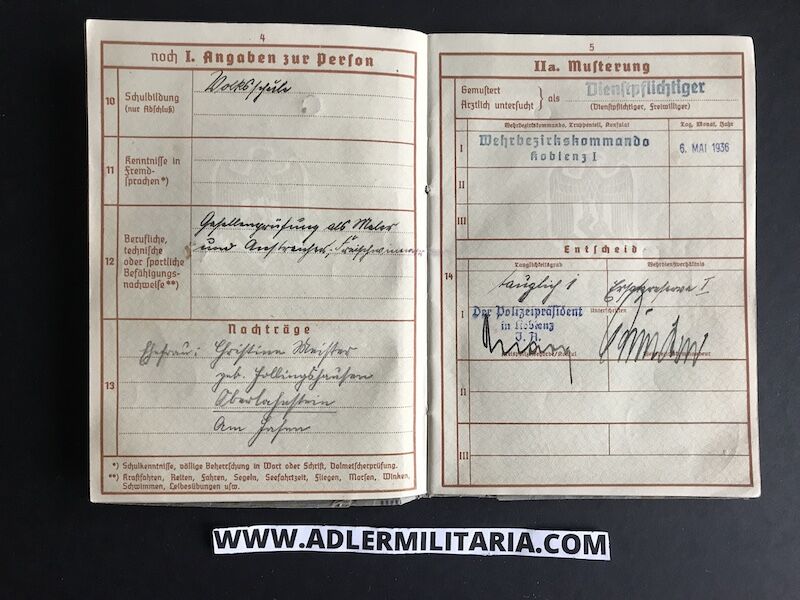 4
noch I. Angaben zur Person
10
Schulbildung
(nur Abschluß)
Volksschule
11
Kenntnisse in
Fremd-
sprachen*)
12
Berufliche,
technische
oder sportliche
Befähigungs-
nachweise**)
Gesellenprüfung als Maler
und Anstreicher, Freischwimmer
Nachträge
13
Ehefrau: Christine Meister
geb. Hollingshausen
Oberlahnstein
Am Hafen
*) Schulkenntnisse, völlige Beherrschung in Wort oder Schrift, Dolmetscherprüfung.
**) Kraftfahren, Reiten, Fahren, Segeln, Seefahrtzeit, Fliegen, Morsen, Winken,
Schwimmen, Leibesübungen usw.
5
IIa. Musterung
Gemustert
Ärztlich untersucht
} als
Dienstpflichtiger
(Dienstpflichtiger, Freiwilliger)
Wehrbezirkskommando, Truppenteil, Konsulat
Tag, Monat, Jahr
I
Wehrbezirkskommando
Koblenz I
6. MAI 1936
II
III
Entscheid
14
Tauglichkeitsgrad
Wehrdienstverhältnis
tauglich 1
Ersatzreserve I
I
Der Polizeipräsident
in Koblenz
J. A.
Unterschriften
II
III
WWW.ADLERMILITARIA.COM